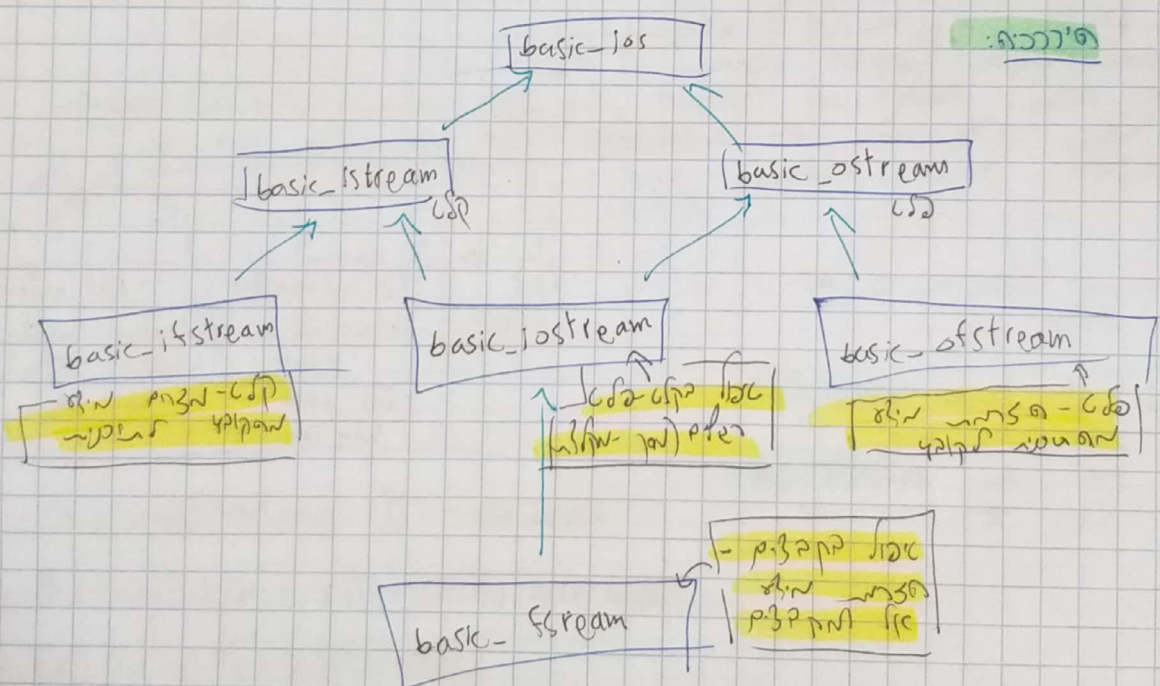 היררכיה:
basic_ios
basic_istream
קלט
basic_ostream
פלט
basic_ifstream
קלט - הזרמת מידע
מהקובץ לתוכנית
basic_iostream
טיפול בקלט-פלט
רגילים (מסך - מקלדת)
basic_ofstream
פלט - הזרמת מידע
מהתוכנית לקובץ
basic_fsream
טיפול בקבצים -
הזרמת מידע
אל ומקבצים